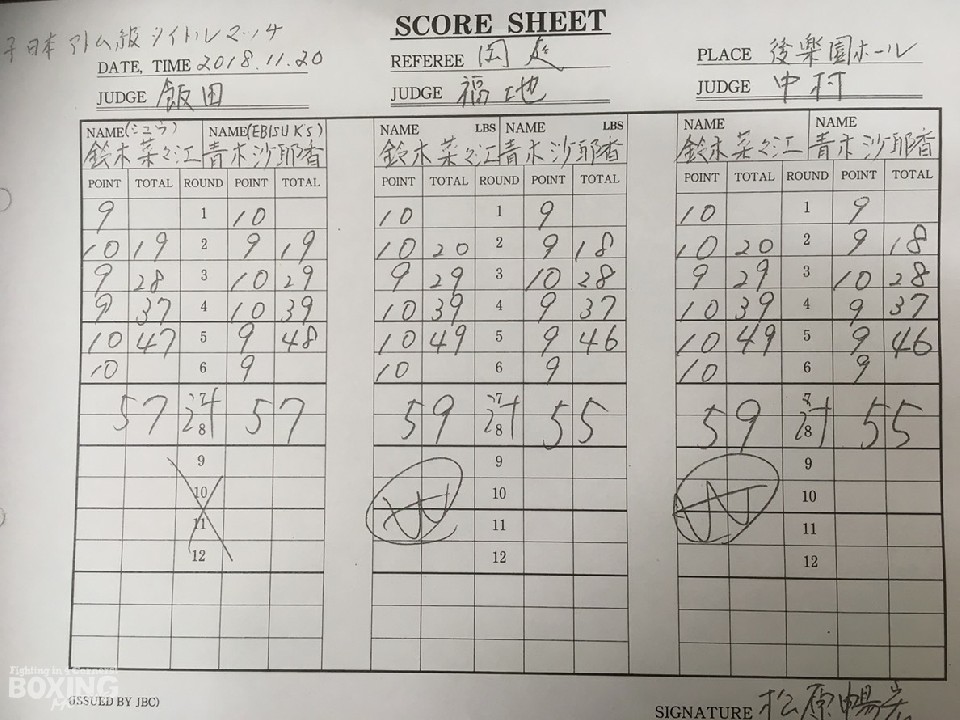 SCORE SHEET
子日本アトム級タイトルマッチ
DATE, TIME 2018.11.20
REFEREE
PLACE 後楽園ホール
JUDGE 飯田
JUDGE 福地
JUDGE 中村
NAME(シュウ) NAME(EBISU K's) NAME LBS NAME LBS NAME NAME
鈴木菜々江 青木沙耶香 鈴木菜々江 青木沙耶香 鈴木菜々江 青木沙耶香
POINT TOTAL ROUND POINT TOTAL POINT TOTAL ROUND POINT TOTAL POINT TOTAL ROUND POINT TOTAL
9 1 10 10 1 9 10 1 9
10 19 2 9 19 10 20 2 9 18 10 20 2 9 18
9 28 3 10 29 9 29 3 10 28 9 29 3 10 28
9 37 4 10 39 10 39 4 9 37 10 39 4 9 37
10 47 5 9 48 10 49 5 9 46 10 49 5 9 46
10 6 9 10 6 9 10 6 9
7 7 7
57 計 57 59 計 55 59 計 55
8 8 8
9 9 9
10 10 10
11 11 11
12 12 12
Fighting in a Corner of
BOXING
(ISSUED BY JBC)
SIGNATURE 松原暢宏